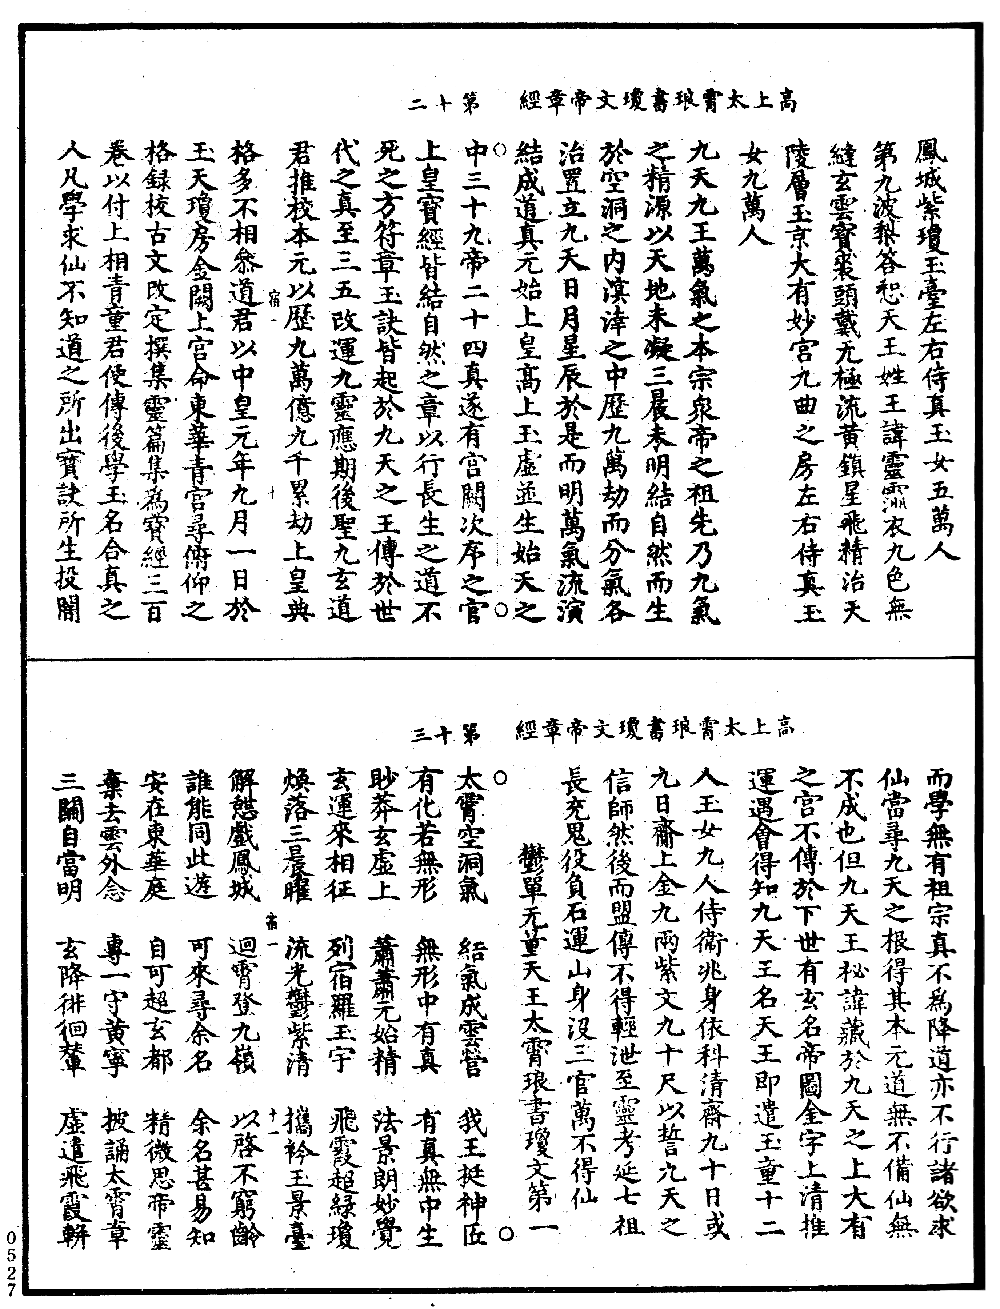 高上太霄琅書瓊文帝章經　第十二
鳳城紫瓊玉臺左右侍真玉女五萬人
第九波梨答恕天王姓王諱靈 衣九色無
縫玄雲寶裘頭戴无極流黃鎮星飛精治天
陵層玉京大有妙宮九曲之房左右侍真玉
女九萬人
九天九王萬氣之本宗衆帝之祖先乃九氣
之精源以天地未凝三晨未明結自然而生
於空洞之內溟涬之中歷九萬劫而分氣各
治置立九天日月星辰於是而明萬氣流演
結成道真元始上皇高上玉虛並生始天之
中三十九帝二十四真遂有宮闕次序之官
上皇寶經皆結自然之章以行長生之道不
死之方符章玉訣皆起於九天之王傳於世
代之真至三五改運九靈應期後聖九玄道
君推校本元以歷九萬億九千累劫上皇典
宿一　十
格多不相叅道君以中皇元年九月一日於
玉天瓊房金闕上宮命東華青宮尋俯仰之
格録挍古文改定撰集靈篇集爲寶經三百
卷以付上相青童君使傳後學玉名合真之
人凡學求仙不知道之所出寶訣所生投闇
高上太霄琅書瓊文帝章經　第十三
而學無有祖宗真不爲降道亦不行諸欲求
仙當尋九天之根得其本元道無不備仙無
不成也但九天王祕諱藏於九天之上大有
之宮不傳於下世有玄名帝圖金字上清推
運遇會得知九天王名天王即遣玉童十二
人玉女九人侍衛兆身依科清齋九十日或
九日齋上金九兩紫文九十尺以誓九天之
信師然後而盟傳不得輕泄至靈考延七祖
長充鬼役負石運山身沒三官萬不得仙
鬱單无量天王太霄琅書瓊文第一
太霄空洞氣　結氣成雲營　我王挺神匠
有化若無形　無形中有真　有真無中生
眇莽玄虛上　蕭蕭元始精　法景朗妙覺
玄運來相征　列宿羅玉宇　飛霞超綠瓊
煥落三晨曜　流光鬱紫清　擕衿玉景臺
宿一　十一
解憇戲鳳城　迴霄登九嶺　以啓不窮齡
誰能同此遊　可來尋余名　余名甚易知
安在東華庭　自可超玄都　精微思帝靈
棄去雲外念　專一守黃寧　披誦太霄章
三關自當明　玄降徘徊輦　虛遣飛霞輧
0527